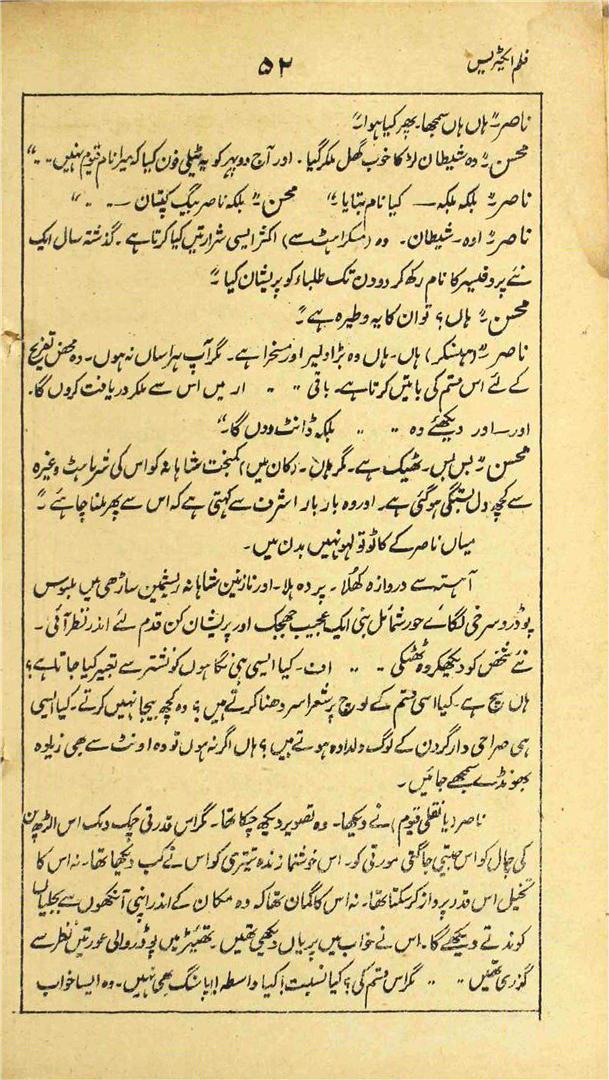 فلم ایکٹریس
۵۲
ناصر۔" ہاں ہاں سمجھا۔ پھر کیا ہوا۔"
محسن۔" وہ شیطان لڑکا خوب گھل ملکر گیا۔ اور آج دوپہر کو یہ ٹیلی فون کیا کہ میرا نام قیوم نہیں۔۔"
ناصر۔" بلکہ بلکہ — کیا نام بتایا۔" محسن۔" بلکہ ناصر بیگ کپتان —۔۔"
ناصر۔" اوہ۔ شیطان۔ وہ (مسکراہٹ سے) اکثر ایسی شرارتیں کیا کرتا ہے۔ گذشتہ سال ایک
نئے پروفیسر کا نام رکھ کر دو دن تک طلباء کو پریشان کیا۔"
محسن۔" ہاں؟ تو ان کا یہ وطیرہ ہے۔"
ناصر۔" (ہنسکر) ہاں۔ ہاں وہ بڑا دلیر اور مسخرا ہے۔ مگر آپ ہراساں نہ ہوں۔ وہ محض تفریح
کے لئے اس قسم کی باتیں کرتا ہے۔ باقی ۔۔ ار میں اس سے ملکر دریافت کروں گا۔
اور—اور دیکھئے وہ ۔۔ بلکہ ڈانٹ دوں گا۔"
محسن۔" بس بس۔ ٹھیک ہے۔ مگر ہاں۔ (کان میں) کمبخت شاہانہ کو اس کی شرماہٹ وغیرہ
سے کچھ دل بستگی ہوگئی ہے۔ اور وہ بار بار اشرف سے کہتی ہے کہ اس سے پھر ملنا چاہئے۔"
میاں ناصر کے کاٹو تو لہو نہیں بدن میں۔
آہستہ سے دروازہ کھُلا۔ پردہ ہلا۔ اور نازنین شاہانہ ریشمین ساڑھی میں ملبوس
پوڈر و سرخی لگائے حور شمائل بنی ایک عجیب جھجک اور پریشان کن قدم لئے اندر نظر آئی۔
نئے شخص کو دیکھکر وہ ٹھٹکی ۔۔ اف۔ کیا ایسی ہی نگاہوں کو نشتر سے تعبیر کیا جاتا ہے؟
ہاں سچ ہے۔ کیا اسی قسم کے لوچ پر شعرا سر دھنا کرتے ہیں؟ وہ کچھ بیجا نہیں کرتے۔ کیا ایسی
ہی صراحی دار گردن کے لوگ دلدادہ ہوتے ہیں؟ ہاں اگر نہ ہوں تو وہ اونٹ سے بھی زیادہ
بھونڈے سمجھے جائیں۔
ناصر (یا نقلی قیوم) نے دیکھا۔ وہ تصویر دیکھ چکا تھا۔ مگر اس قدرتی چمک دمک اس الھڑ پن
کی چال کو اس جیتی جاگتی مورتی کو۔ اس خوشنما زندہ تیتری کو اس نے کب دیکھا تھا۔ نہ اس کا
تخیل اس قدر پرواز کر سکتا تھا۔ نہ اس کا گمان تھا کہ وہ مکان کے اندر اپنی آنکھوں سے بجلیاں
کوندتے دیکھے گا۔ اس نے خواب میں پریاں دیکھی تھیں۔ تھیٹر میں پوڈر والی عورتیں نظر سے
گذری تھیں ۔۔ مگر اس قسم کی؟ کیا نسبت! کیا واسطہ! پاسنگ بھی نہیں۔ وہ ایسا خواب